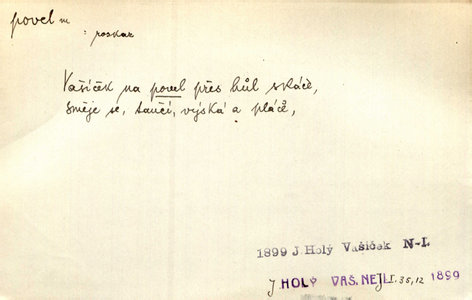 povel m
: rozkaz
Vašíček na povel přes hůl skáče,
směje se, tančí, výská a pláče,
1899 J. Holý Vašíček N-I.
J. HOLÝ VAŠ. NEJL I. 35, 12 1899